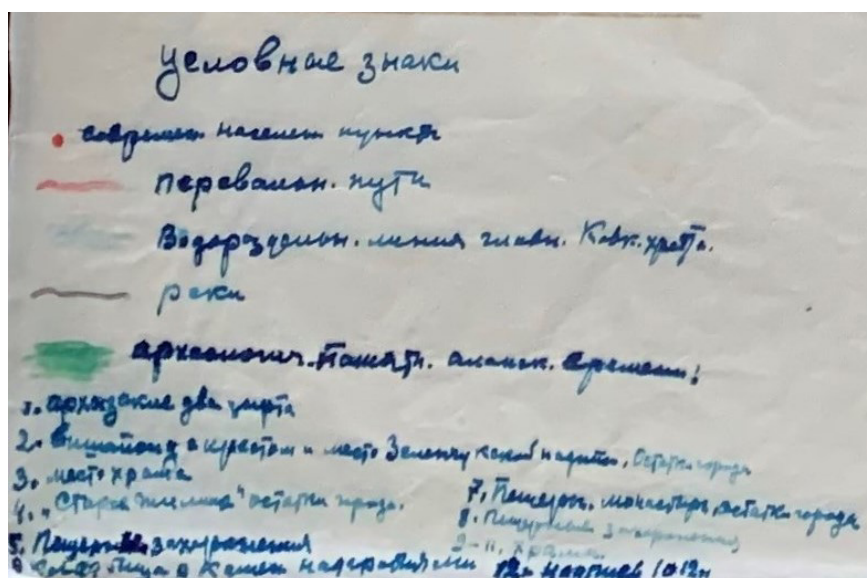 Условные знаки
современ. населен. пункты
перевальн. пути
Водораздельн. линия главн. Кавк. хребта.
реки
археологич. памятн. аланск. времени:
1. архызские два
2. с крестом и место Зеленчукской надписи, Остатки города
3. место храма
4. "Старое жилище" остатки города.
5. Пещерные захоронения
7. Пещеры, монастырь, остатки города
8. Пещерные захоронения
9-11, храмы.